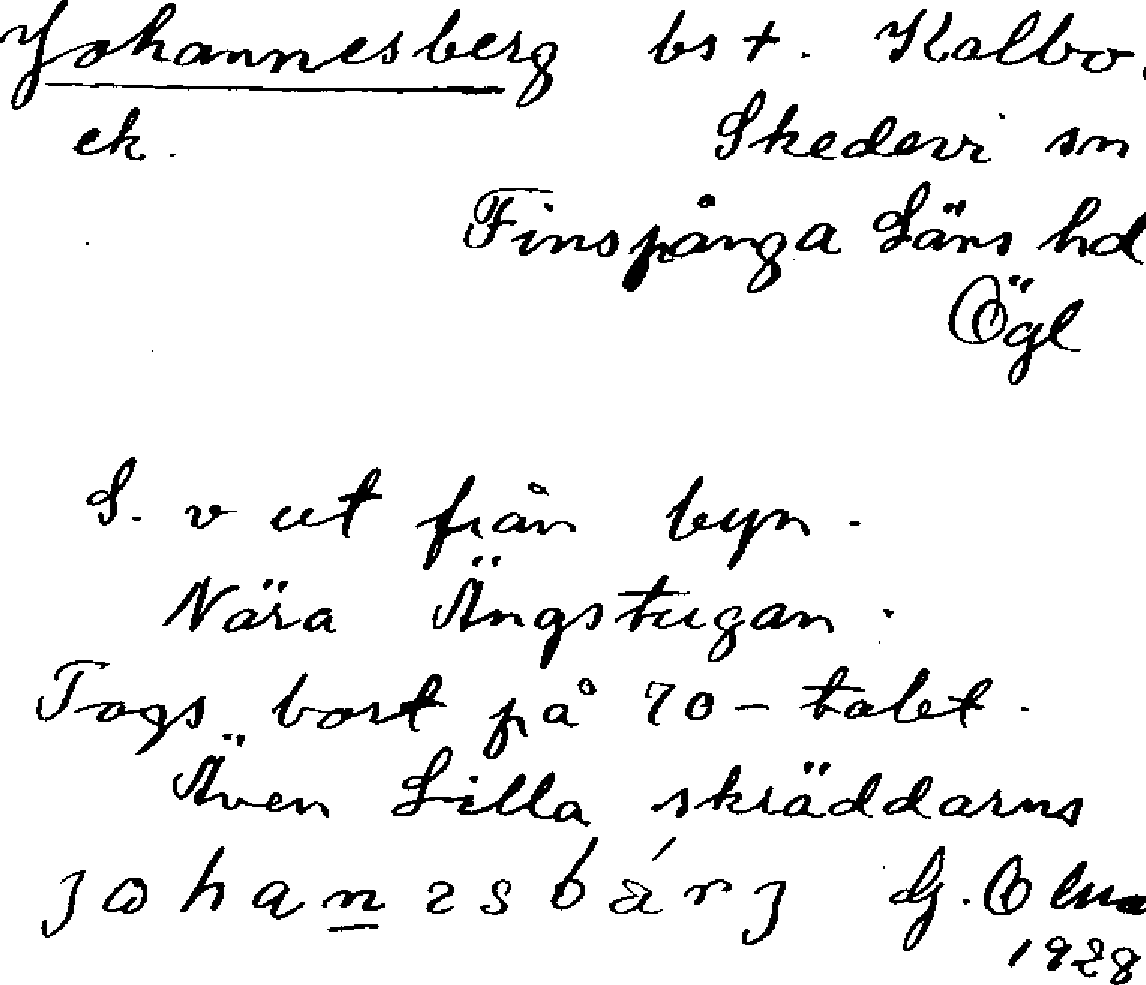 Johannesberg bst. Kalbo.
ek. Skedevi sn
Finspånga Läns hd
Ögl
S. v ut från byn.
Nära Ängstugan.
Togs bort på 70-talet.
Även Lilla skräddarns
G.
1928